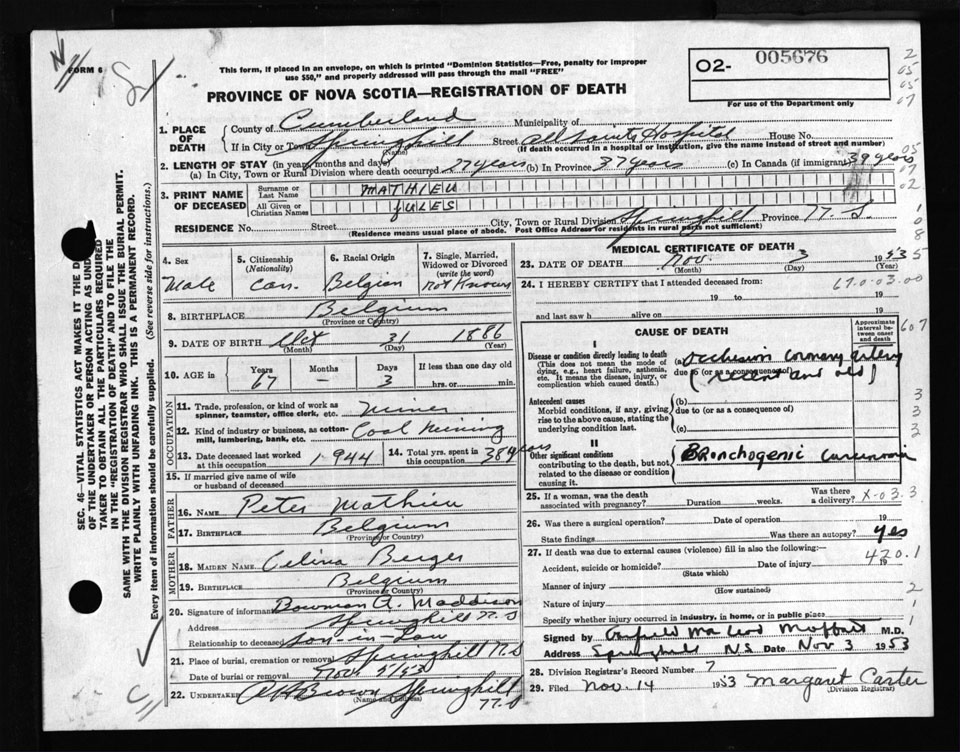 FORM 6
This form, if placed in an envelope, on which is printed "Dominion Statistics—Free, penalty for improper
use $50," and properly addressed will pass through the mail "FREE"
PROVINCE OF NOVA SCOTIA—REGISTRATION OF DEATH
02- 005676
For use of the Department only
1. PLACE OF DEATH
County of Cumberland Municipality of
If in City or Town Springhill Street All Saints Hospital House No.
(Name) (If death occurred in a hospital or institution, give the name instead of street and number)
2. LENGTH OF STAY (in years, months and days)
(a) In City, Town or Rural Division where death occurred 27 years (b) In Province 37 years (c) In Canada (if immigrant) 39 years
3. PRINT NAME OF DECEASED
Surname or Last Name MATHIEU
All Given or Christian Names JULES
RESIDENCE No. Street City, Town or Rural Division Springhill Province N.S.
(Residence means usual place of abode. Post Office Address for residents in rural parts not sufficient)
4. Sex
Male
5. Citizenship
(Nationality)
Can.
6. Racial Origin
Belgian
7. Single, Married,
Widowed or Divorced
(write the word)
Not Known
8. BIRTHPLACE Belgium
(Province or Country)
9. DATE OF BIRTH Oct 31 1886
(Month) (Day) (Year)
10. AGE in
Years Months Days If less than one day old
67 — 3 hrs. or min.
OCCUPATION
11. Trade, profession, or kind of work as
spinner, teamster, office clerk, etc. Miner
12. Kind of industry or business, as cotton-
mill, lumbering, bank, etc. Coal Mining
13. Date deceased last worked
at this occupation 1944
14. Total yrs. spent in
this occupation 38 years
15. If married give name of wife
or husband of deceased
FATHER
16. NAME Peter Mathieu
17. BIRTHPLACE Belgium
(Province or Country)
MOTHER
18. MAIDEN NAME Celina Berger
19. BIRTHPLACE Belgium
(Province or Country)
20. Signature of informant Bowman A. Maddison
Address Springhill N.S
Relationship to deceased Son-in-Law
21. Place of burial, cremation or removal Springhill N.S
Date of burial or removal Nov. 5/53
22. UNDERTAKER A H Brown Springhill
(Name and Address) N.S
MEDICAL CERTIFICATE OF DEATH
23. DATE OF DEATH Nov. 3 1953
(Month) (Day) (Year)
24. I HEREBY CERTIFY that I attended deceased from:
67.0.03.00
19 to 19
and last saw h alive on 19
CAUSE OF DEATH
Approximate interval between onset and death
I
Disease or condition directly leading to death
(This does not mean the mode of
dying, e.g., heart failure, asthenia,
etc. It means the disease, injury, or
complication which caused death.)
(a) Occlusion coronary artery
due to (or as a consequence of)
(recent and old)
Antecedent causes
Morbid conditions, if any, giving
rise to the above cause, stating the
underlying condition last.
(b)
due to (or as a consequence of)
(c)
II
Other significant conditions
contributing to the death, but not
related to the disease or condition
causing it.
Bronchogenic carcinoma
25. If a woman, was the death
associated with pregnancy? Duration weeks. Was there a delivery? X-03.3
26. Was there a surgical operation? Date of operation 19
State findings Was there an autopsy? yes
27. If death was due to external causes (violence) fill in also the following:— 420.1
Accident, suicide or homicide? Date of injury 19
(State which)
Manner of injury
(How sustained)
Nature of injury
Specify whether injury occurred in industry, in home, or in public place
Signed by MacLeod M.D.
Address Springhill N.S. Date Nov 3 1953
28. Division Registrar's Record Number 7
29. Filed Nov. 14 1953 Margaret Carter
(Division Registrar)
OF THE UNDERTAKER OR PERSON ACTING AS UND
TAKER TO OBTAIN ALL THE PARTICULARS REQUIRED
IN THE "REGISTRATION OF DEATH" AND TO FILE THE
SAME WITH THE DIVISION REGISTRAR WHO SHALL ISSUE THE BURIAL PERMIT.
WRITE PLAINLY WITH UNFADING INK. THIS IS A PERMANENT RECORD.
Every item of information should be carefully supplied. (See reverse side for instructions.)
SEC. 46—VITAL STATISTICS ACT MAKES IT THE D